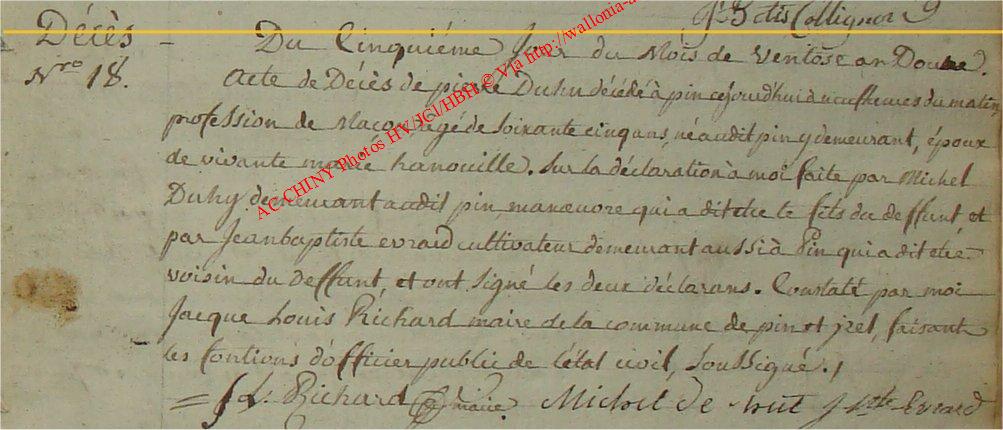 Décès
Nro 18.
Du Cinquiéme Jour du Mois de Ventose an Douze.
Acte de Décès de pierre Duhy décédé à pin cejourdhui à neuf heures du matin,
profession de Maçon, agé de soixante cinq ans, né audit pin y demeurant, époux
de vivante marie hanouille. Sur la déclaration à moi faite par Michel
Duhy demeurant audit pin, manœuvre qui a dit etre le fils du deffunt, et
par Jeanbaptiste evrard cultivateur demeurant aussi à Pin qui a dit etre
voisin du deffunt, et ont signé les deux déclarans. Constaté par moi
Jacque Louis Richard maire de la commune de pin et jzel, faisant
les fontions d'officier public de l'état civil, soussigné.
J L. Richard maire. Michel de huit J bte Evrard
AC CHINY Photos HV JCl/HBH © Via http://wallonia-a